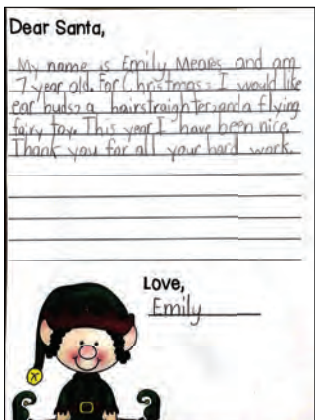 Dear Santa,
My name is Emily Meares and am
7 year old. For Christmas, I would like
ear buds, a hairstraighter, and a flying
fairy toy. This year I have been nice.
Thank you for all your hard work.
Love,
Emily